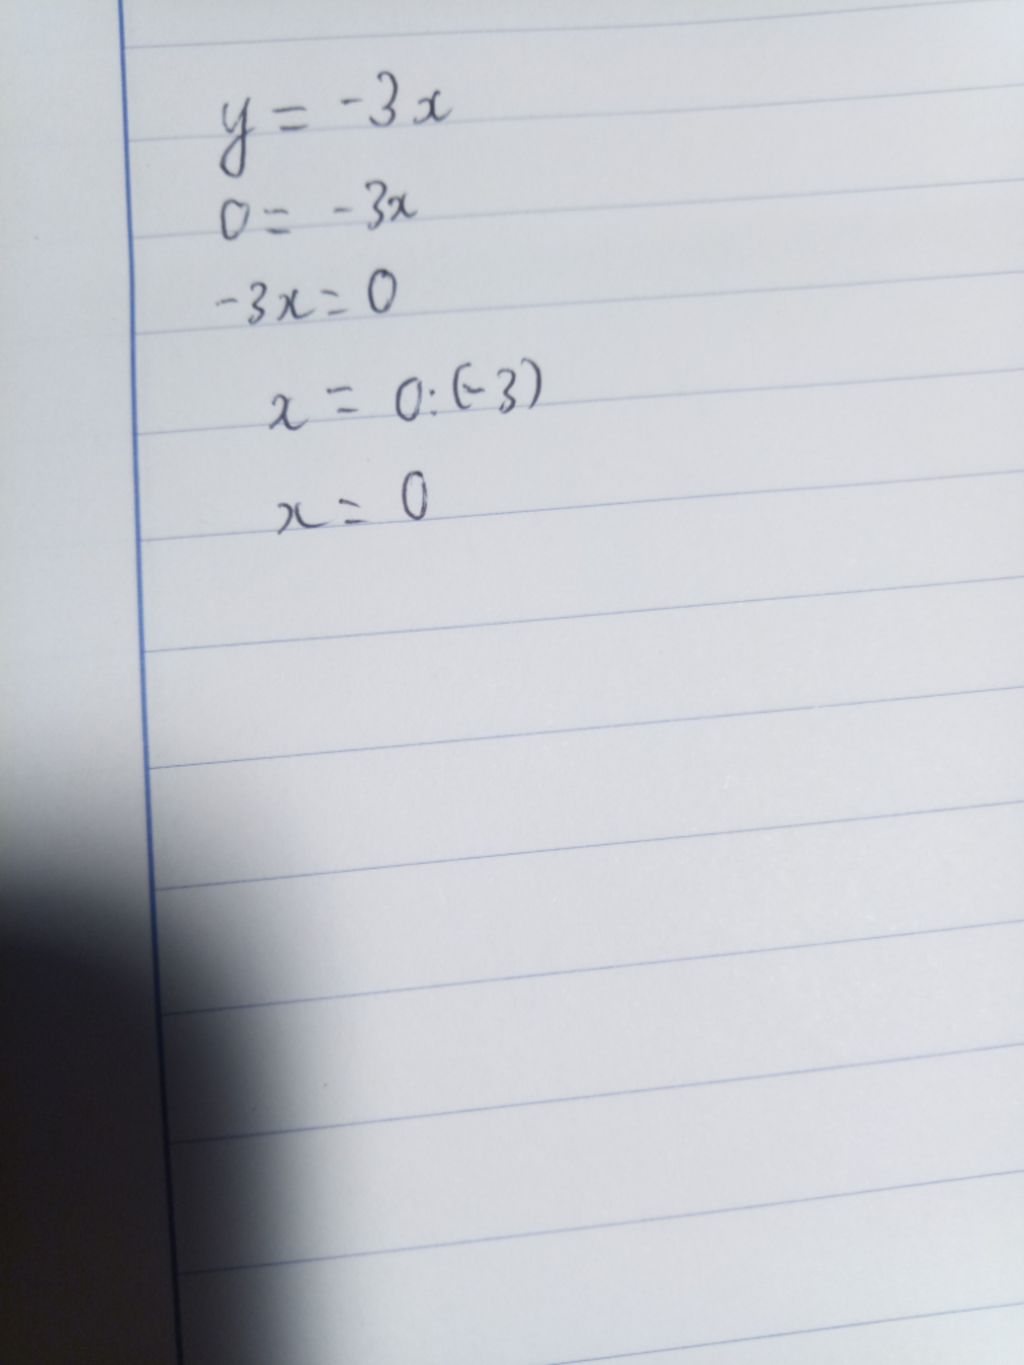 y = -3x
0 = -3x
-3x = 0
x = 0:(-3)
x = 0